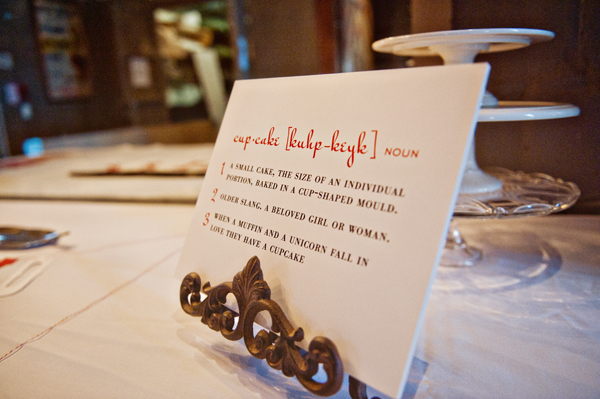 cup·cake [kuhp-keyk] NOUN
1 A SMALL CAKE, THE SIZE OF AN INDIVIDUAL
PORTION, BAKED IN A CUP-SHAPED MOULD.
2 OLDER SLANG. A BELOVED GIRL OR WOMAN.
3 WHEN A MUFFIN AND A UNICORN FALL IN
LOVE THEY HAVE A CUPCAKE